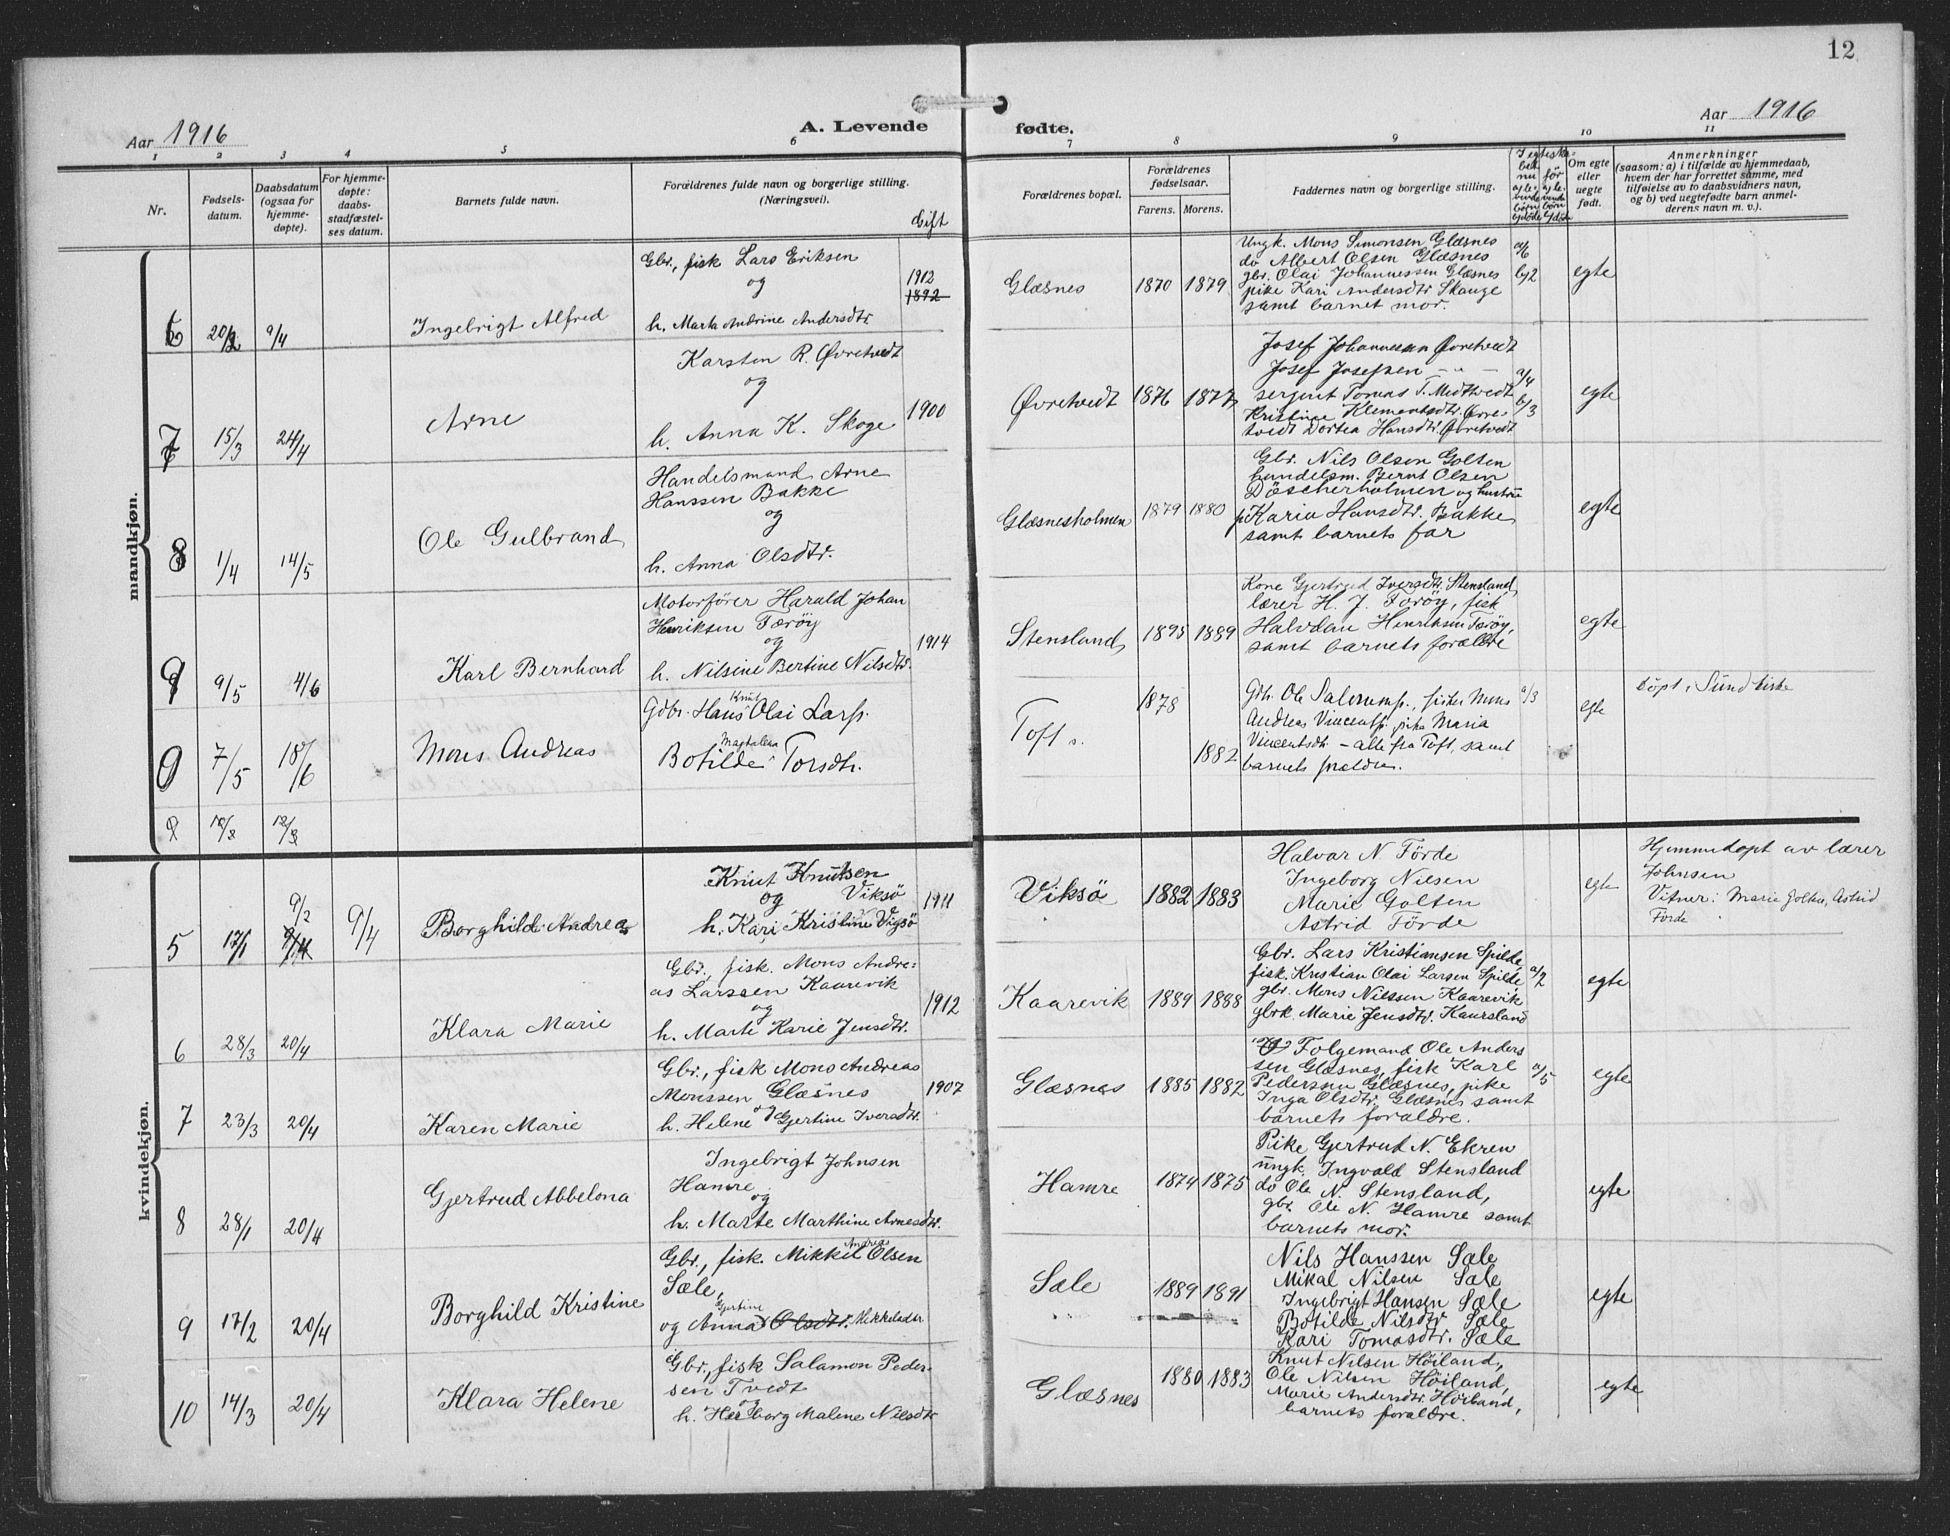 12
Aar 1916
A. Levende fødte.
Aar 1916
1 2 3 4 5 6 7 8 9 10 11
Nr.
Fødsels-
datum.
Daabsdatum
(ogsaa for
hjemme-
døpte).
For hjemme-
døpte:
daabs-
stadfæstel-
ses datum.
Barnets fulde navn.
Forældrenes fulde navn og borgerlige stilling.
(Næringsvei).
Gift
Forældrenes bopæl.
Forældrenes
fødselsaar.
Farens. Morens.
Faddernes navn og borgerlige stilling.
Om egte
eller
uegte
født.
Anmerkninger
(saasom: a) i tilfælde av hjemmedaab,
hvem der har forrettet samme, med
tilføielse av to daabsvidners navn,
og b) ved uegtefødte barn anmel-
derens navn m. v.).
mandkjøn.
6 20/2 9/4
Ingebrigt Alfred
Gbr., fisk Lars Eriksen
og
h. Marta Andrine Andersdtr.
1912
1892
Glæsnes 1870 1879
Ungk. Mons Simonsen Glæsnes
do Albert Olsen Glæsnes
gbr. Olai Johannessen Glæsnes
pike Kari Andersdtr Skauge
samt barnet mor.
a/6
b/2
egte
7 15/3 24/4
Arne
Karsten R. Øvretvedt
og
h. Anna K. Skoge
1900
Øvretvedt 1876 1877
Josef Johannessen Øvretvedt
Josef Josefsen - " -
serjent Tomas T. Midttvedt
Kristine Klementsdtr. Øvre-
tvedt Dortea Hansdtr. Øvretvedt
a/4
b/3
egte
8 1/4 14/5
Ole Gulbrand
Handelsmand Arne
Hanssen Bakke
og
h. Anna Olsdtr.
Glæsnesholmen 1879 1880
Gbr. Nils Olsen Golten
handelsm. Bernt Olsen
Döscherholmen og hustru
p Karia Hansdtr. Bakke
samt barnets far
egte
9 9/5 4/6
Karl Bernhard
Motorfører Harald Johan
Henriksen Færöy
og
h. Nilsine Bertine Nilsdtr.
1914
Stensland 1895 1889
Kone Gjertrged Iversdtr. Stensland,
lærer H. J. Færöy, fisk
Halvdan Henriksen Færöy,
samt barnets forældre
egte
0 7/5 18/6
Mons Andreas
Gdbr. Hans Knut Olai Larsp.
Botilde Magdalena Torsdtr.
Toft s. 1878
1882
Gdb. Ole Salomsp., fisker Mons
Andreas Vincentsp. pike Maria
Vincentsdtr. - alle fra Toft, samt
barnets foreldre.
a/3
egte
Döpt i Sund kirke
kvindekjøn.
5 17/1 9/2 9/4
Borghild Andrea
Knut Knutsen
og Viksö
h. Kari Kristine Vigsö
1911
Viksö 1882 1883
Halvar N Förde
Ingeborg Nilsen
Marie Golten
Astrid Förde
egte
Hjemmedöpt av lærer
Johnsen
Vitner: Marie Golten, Astrid
Förde
6 28/3 20/4
Klara Marie
Gbr., fisk. Mons Andre-
as Larssen Kaarevik
og
h. Marte Karie Jensdtr.
1912
Kaarevik 1889 1888
Gbr. Lars Kristiansen Spilde,
fisk. Kristian Olai Larsen Spilde
gbr. Mons Nilssen Kaarevik
gbrk. Marie Jensdtr. Kaursland
a/2
egte
7 23/3 20/4
Karen Marie
Gbr., fisk Mons Andreas
Monssen Glæsnes
og
h. Helene Gjertine Iversdtr.
1907
Glæsnes 1885 1882
Folgemand Ole Anders
sen Glæsnes, fisk Karl
Pedersen Glæsnes, pike
Inga Olsdtr. Glæsnes samt
barnets forældre.
a/5
egte
8 28/1 20/4
Gjertrud Abbelona
Ingebrigt Johnsen
Hamre
og
h. Marte Marthine Arnesdtr.
Hamre 1874 1875
Pike Gjertrud N. Ekren
ungk. Ingvald Stensland
do Ole N. Stensland,
gbr. Ole N. Hamre samt
barnets mor.
egte
9 17/2 20/4
Borghild Kristine
Gbr., fisk. Mikkel Andreas Olsen
Sæle,
og Anna Gjertine Olsdtr. Mikkelsdtr
Sæle 1889 1891
Nils Hanssen Sæle
Mikal Nilsen Sæle
Ingebrigt Hansen Sæle
Botilde Nilsdtr Sæle
Kari Tomasdtr. Sæle
egte
10 14/3 20/4
Klara Helene
Gbr., fisk Salamon Peder-
sen Tvedt
og
h. Herborg Malene Nilsdtr
Glæsnes 1880 1883
Knut Nilsen Höiland,
Ole Nilsen Höiland,
Marie Andersdtr. Höiland,
barnets forældre.
egte